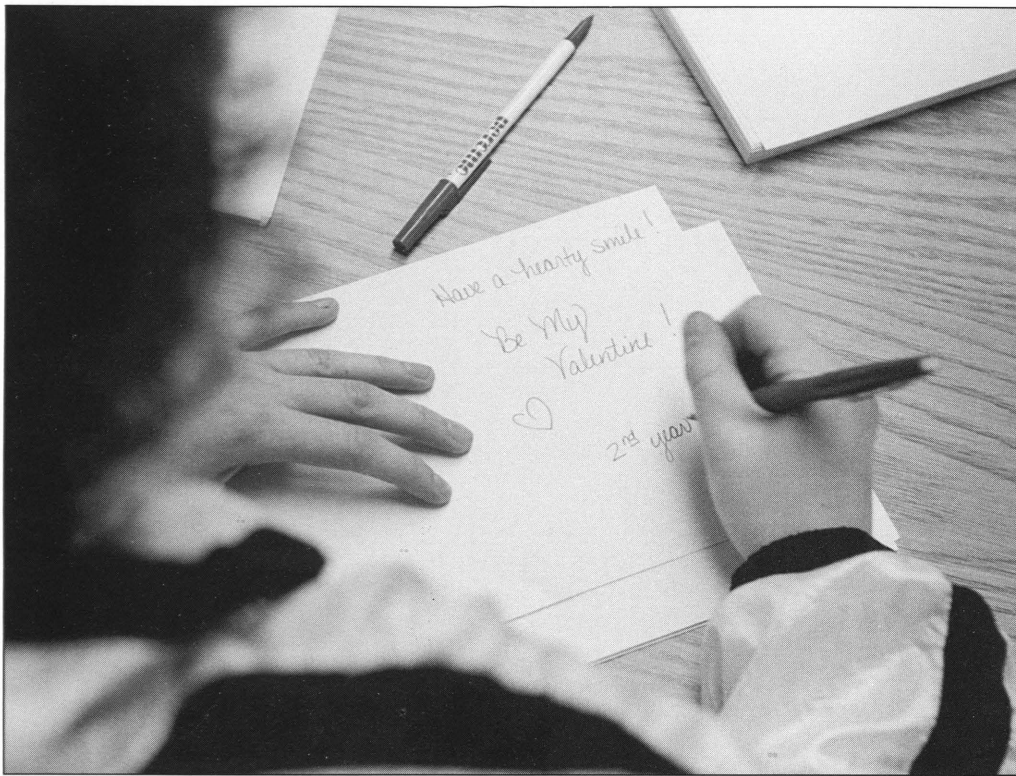 Have a hearty smile!
Be My
Valentine!
2nd year